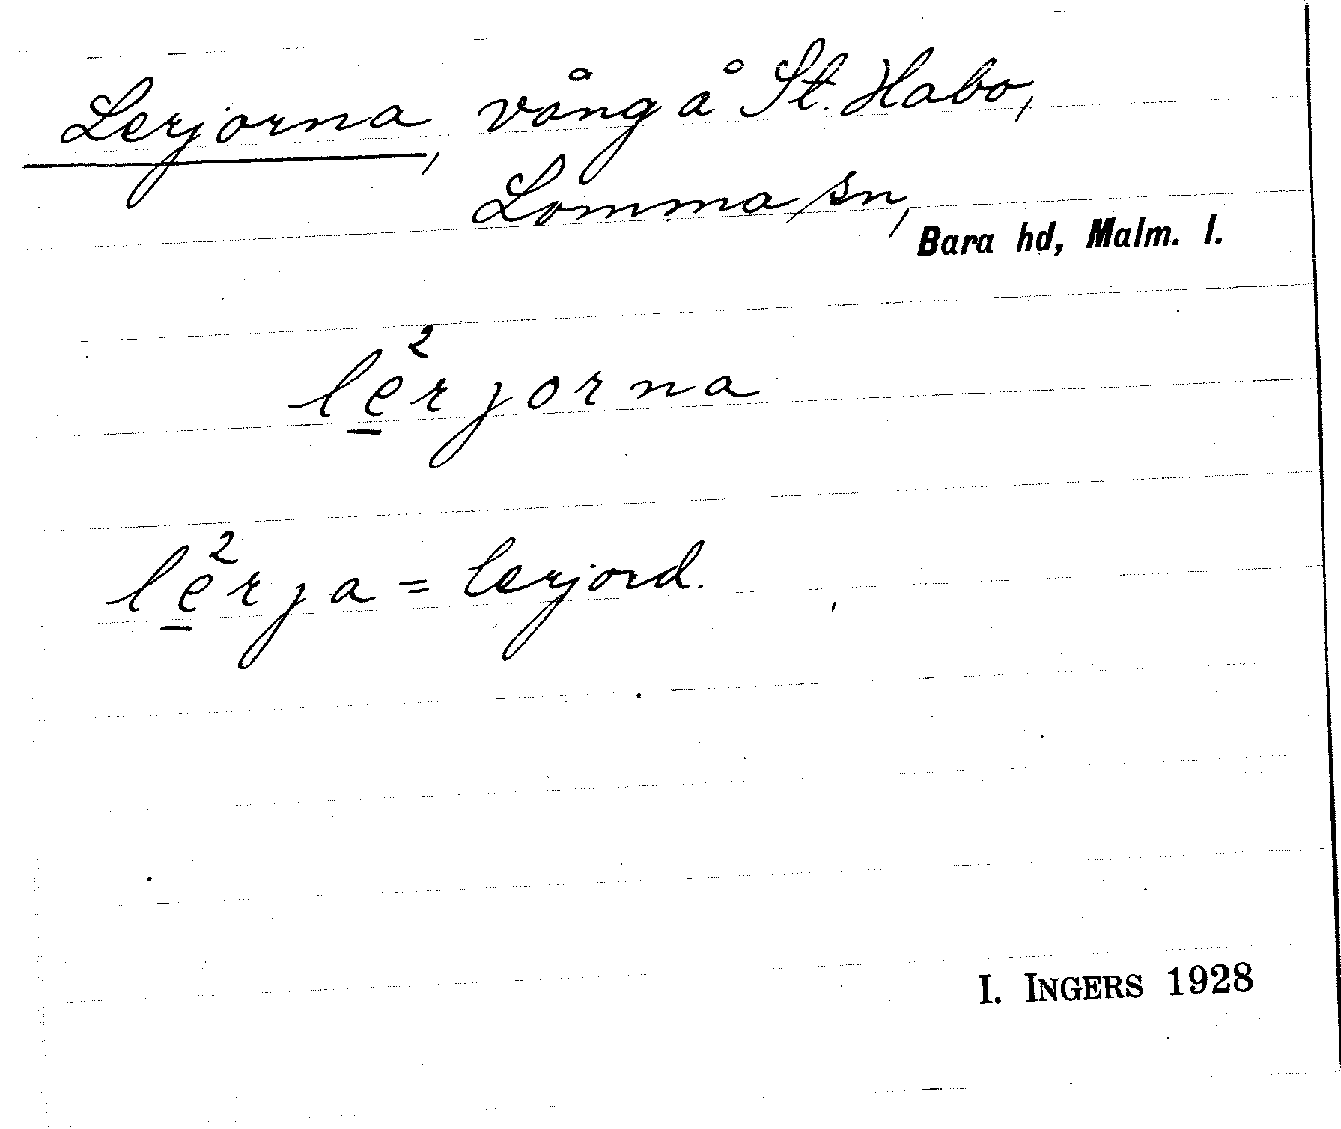 Lerjorna, vång å St. Habo,
Lomma sn,
Bara hd, Malm. l.
le̱²rjorna
le̱²rja = lerjord.
I. INGERS 1928